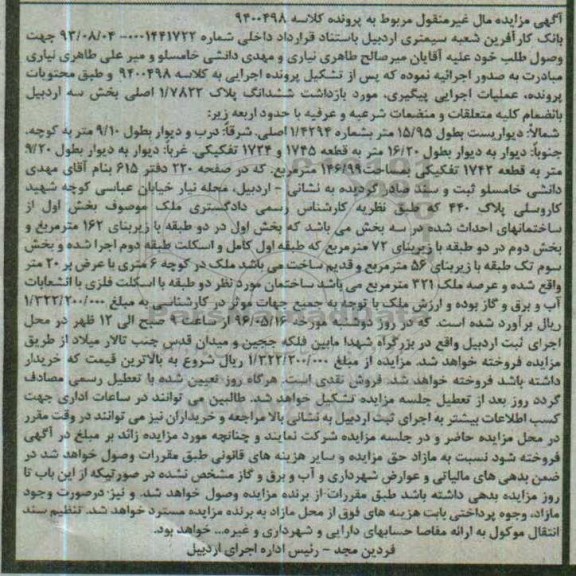 آگهی مزایده مال غیرمنقول مربوط به پرونده کلاسه ۹۴۰۰۴۹۸
بانک کارآفرین شعبه سیمتری اردبیل باستناد قرارداد داخلی شماره ۰۰۰۱۴۴۱۷۲۲-۹۳/۰۸/۰۴ جهت
وصول طلب خود علیه آقایان میرصالح طاهری نیاری و مهدی دانشی خامسلو و میر علی طاهری نیاری
مبادرت به صدور اجرائیه نموده که پس از تشکیل پرونده اجرایی به کلاسه ۹۴۰۰۴۹۸ و طبق محتویات
پرونده، عملیات اجرایی پیگیری، مورد بازداشت ششدانگ پلاک ۱/۷۸۲۲ اصلی بخش سه اردبیل
بانضمام کلیه متعلقات و منضمات شرعیه و عرفیه با حدود اربعه زیر:
شمالاً: دیواریست بطول ۱۵/۹۵ متر بشماره ۱/۴۲۹۴ اصلی. شرقاً: درب و دیوار بطول ۹/۱۰ متر به کوچه.
جنوباً: دیوار به دیوار بطول ۱۶/۲۰ متر به قطعه ۱۷۴۵ و ۱۷۳۴ تفکیکی. غرباً: دیوار به دیوار بطول ۹/۲۰
متر به قطعه ۱۷۴۳ تفکیکی بمساحت ۱۴۶/۹۹ مترمربع. که در صفحه ۲۲۰ دفتر ۶۱۵ بنام آقای مهدی
دانشی خامسلو ثبت و سند صادر گردیده به نشانی - اردبیل، محله نیار خیابان عباسی کوچه شهید
کاروسلی پلاک ۴۴۰ که طبق نظریه کارشناس رسمی دادگستری ملک موصوف بخش اول از
ساختمانهای احداث شده در سه بخش می باشد که بخش اول در دو طبقه با زیربنای ۱۶۲ مترمربع و
بخش دوم در دو طبقه با زیربنای ۷۲ مترمربع که طبقه اول کامل و اسکلت طبقه دوم اجرا شده و بخش
سوم تک طبقه با زیربنای ۵۶ مترمربع و قدیم ساخت می باشد ملک در کوچه ۶ متری با عرض بر ۲۰ متر
واقع شده و عرصه ملک ۳۲۱ مترمربع می باشد ساختمان مورد نظر دو طبقه با اسکلت فلزی با انشعابات
آب و برق و گاز بوده و ارزش ملک با توجه به جمیع جهات موثر در کارشناسی به مبلغ ۱/۳۲۲/۲۰۰/۰۰۰
ریال برآورد شده است. که در روز دوشنبه مورخه ۹۶/۰۵/۱۶ از ساعت ۹ صبح الی ۱۲ ظهر در محل
اجرای ثبت اردبیل واقع در بزرگراه شهدا مابین فلکه ججین و میدان قدس جنب تالار میلاد از طریق
مزایده فروخته خواهد شد. مزایده از مبلغ ۱/۳۲۲/۲۰۰/۰۰۰ ریال شروع به بالاترین قیمت که خریدار
داشته باشد فروخته خواهد شد. فروش نقدی است. هرگاه روز تعیین شده با تعطیل رسمی مصادف
گردد روز بعد از تعطیل جلسه مزایده تشکیل خواهد شد. طالبین می توانند در ساعات اداری جهت
کسب اطلاعات بیشتر به اجرای ثبت اردبیل به نشانی بالا مراجعه و خریداران نیز می توانند در وقت مقرر
در محل مزایده حاضر و در جلسه مزایده شرکت نمایند و چنانچه مورد مزایده زائد بر مبلغ در آگهی
فروخته شود نسبت به مازاد حق مزایده و سایر هزینه های قانونی طبق مقررات وصول خواهد شد در
ضمن بدهی های مالیاتی و عوارض شهرداری و آب و برق و گاز مشخص نشده در صورتیکه از این باب تا
روز مزایده بدهی داشته باشد طبق مقررات از برنده مزایده وصول خواهد شد. و نیز درصورت وجود
مازاد، وجوه پرداختی بابت هزینه های فوق از محل مازاد به برنده مزایده مسترد خواهد شد. تنظیم سند
انتقال موکول به ارائه مفاصا حسابهای دارایی و شهرداری و غیره... خواهد بود.
فردین مجد - رئیس اداره اجرای اردبیل